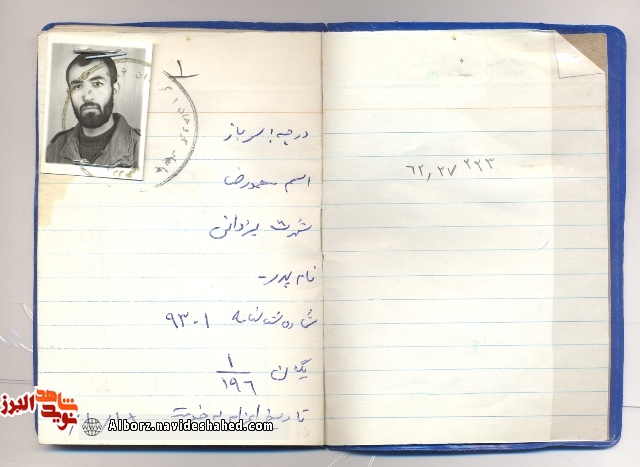 ۱
درجه سرباز
اسم محمودرضا
شهرت یزدانی
نام پدر -
شماره شناسنامه ۹۳۰۱
یگان ۱/۱۹۶
تاریخ اعزام به خدمت
۶۲,۲۷ ۲۲۳
نوید شاهد البرز
Alborz.navideshahed.com